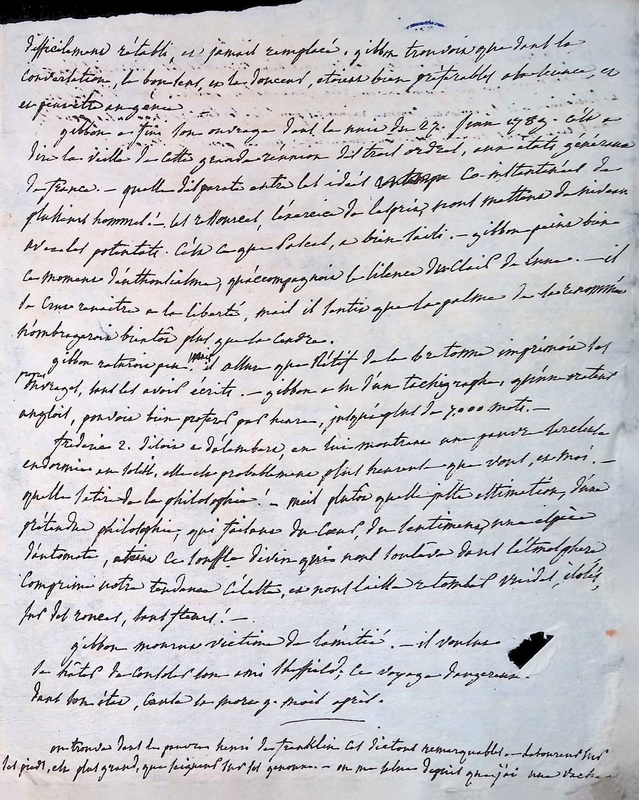 difficilement rétabli, et jamais remplacé. gibbon trouvoit que dans la
conversation, le bon sens, et la douceur, étoient bien préférables a la science, et
et peut être au génie
gibbon a fini son ouvrage dans la nuit du 27. Juin 1787. c'est a
dire la veille de cette grande réunion des trois ordres, aux états généraux
de france. — quelle disparate entre les idées co-instantanées de
plusieurs hommes. — les ressources, l'exercice de l'esprit, nous mettent de niveau
avec les potentats. C'est ce que Pascal, a bien senti. — gibbon peint bien
ce moment d'enthousiasme, qu'accompagnoit le silence du clair de lune. — il
se crut renaitre a la liberté, mais il sentit que la palme de la renommée
n'ombrageroit bientôt plus que sa cendre.
gibbon raturoit peu, mais il assure que Rétif de la bretonne imprimoit ses
propres ouvrages, sans les avoir écrits. — gibbon a vu d'un tachigraphe, qu'un orateur
anglois, pouvoit bien proférer par heure, jusqu'a plus de 7000 mots. —
frédéric 2. disoit a dalembert, en lui montrant une pauvre
endormie au soleil, elle est probablement plus heureuse que vous, et moi. —
quelle satire de la philosophie! — mais plutôt quelle estimation, d'une
prétendue philosophie, qui faisant du coeur, du sentiment, une espèce
d'automate, ce souffle divin qui nous soulève dans l'atmosphère
comprime notre tendance céleste, et nous laisse retomber isolés,
sur des ronces, sans fleurs! —
gibbon mourut victime de l'amitié. — il voulut
se hâter de consoler son ami Sheffield; ce voyage dangereux
dans son état, causa sa mort 9. mois après.
on trouve dans le pauvre henri de franklin ces dictons remarquables. — laboureur sur
ses pieds, est plus grand, que seigneur sur ses genoux. — on me salue depuis que j'ai une vache.